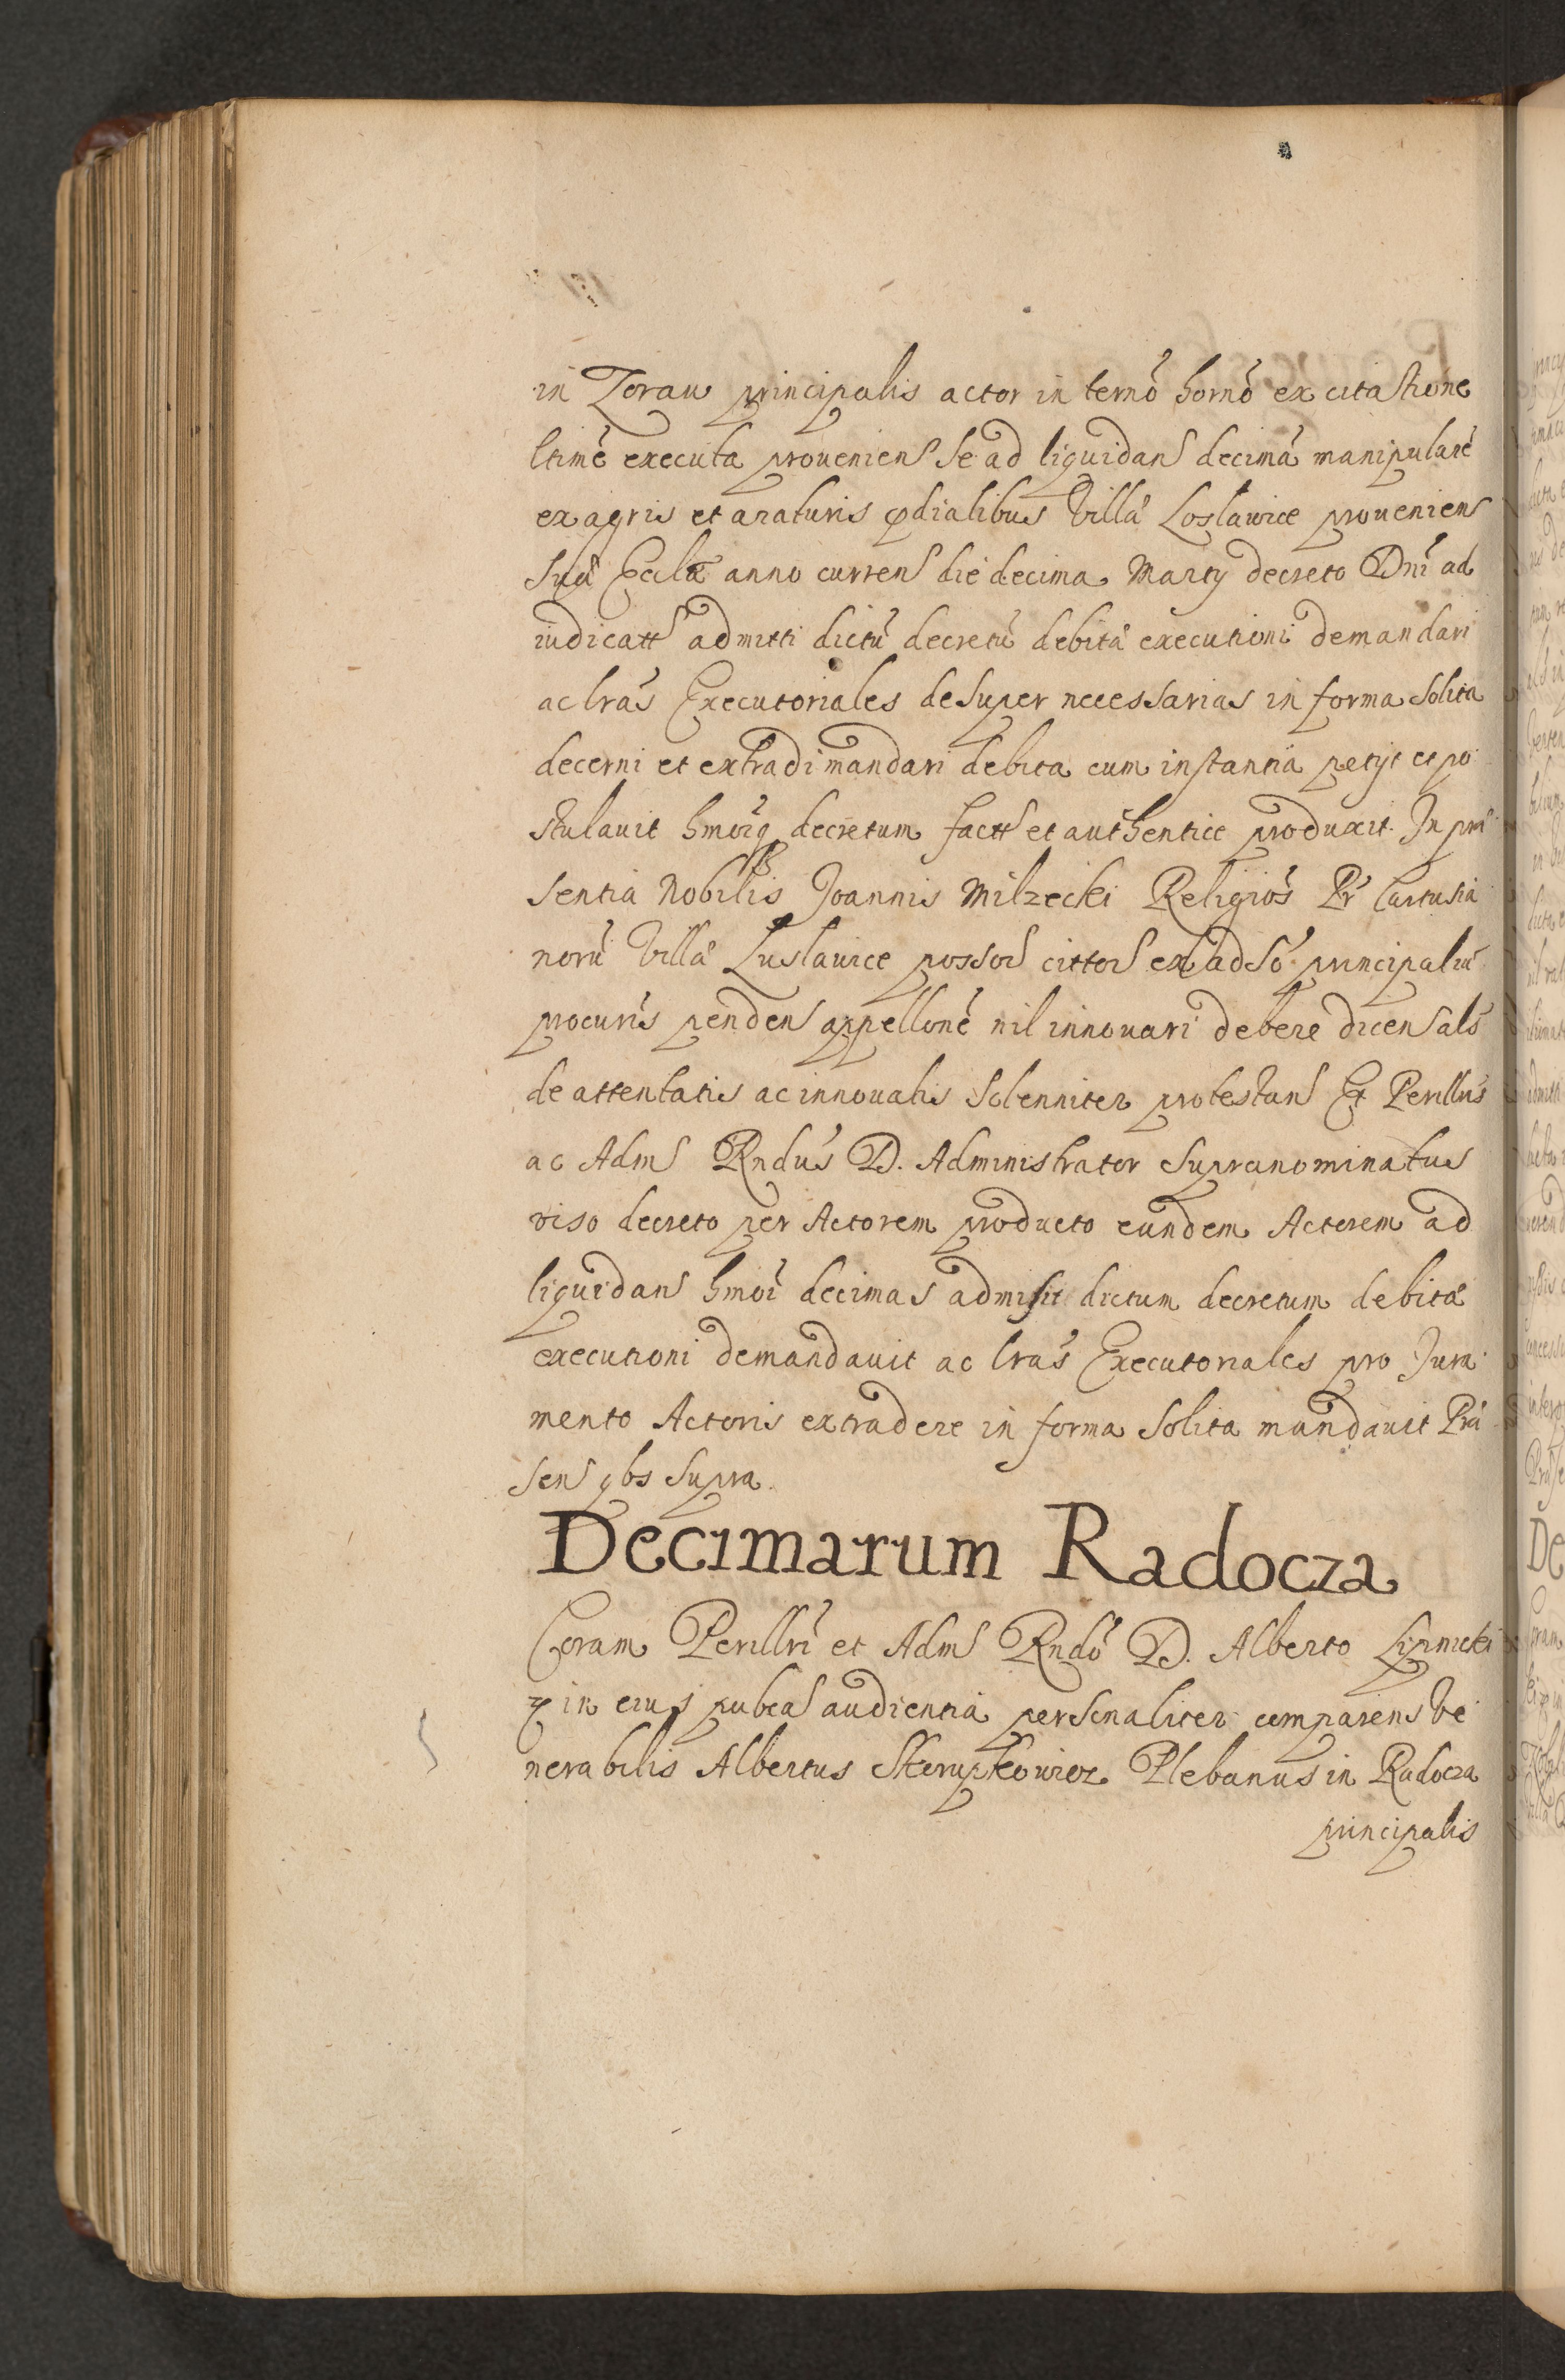 in Zoraw principalis actor in termō hornō ex citatione
ltimē executa proueniens se ad liquidans decimā manipularē
ex agris et araturis p̱dialibus Villæ Loslawice proueniens
suæ Eccłæ anno currens die decima Martÿ decreto Dnī ad
iudicatt admitti dictū decretū debitæ executioni demandari
ac lrās Executoriales desuper necessarias in forma solita
decerni et extradi mandari debita cum instantia petÿt et po
stulauit hmōiq decretum factt et authentice produxit. In præ
sentia Nobilis Joannis Milzecki Religiōs Pr̄ Cartusia
norū Villæ Luslawice possors cittors ex adsō principaliū
procuris pendens appellonē nil innouari debere dicens als
de attentatis ac innouatis solenniter protestans Et Perillus
ac Adm Rndus D. Administrator supranominatus
viso decreto per Actorem producto eundem Actorem ad
liquidans hmōi decimas admisit dictum decretum debitæ
executioni demandauit ac lrās Executoriales pro Jura
mento Actoris extradere in forma solita mandauit Præ
sens qbs supra.
Decimarum Radocza
Coram Perillri et Adm Rndō D. Alberto Lipnicki
in eius pubca audientia personaliter comparens Ve
nerabilis Albertus Skrupkowicz Plebanus in Radocza
principalis